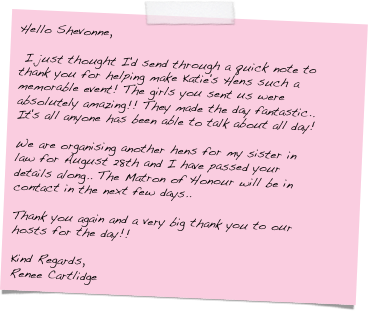 Hello Shevonne,
I just thought I'd send through a quick note to
thank you for helping make Katie's Hens such a
memorable event! The girls you sent us were
absolutely amazing!! They made the day fantastic..
It's all anyone has been able to talk about all day!
We are organising another hens for my sister in
law for August 28th and I have passed your
details along.. The Matron of Honour will be in
contact in the next few days..
Thank you again and a very big thank you to our
hosts for the day!!
Kind Regards,
Renee Cartlidge